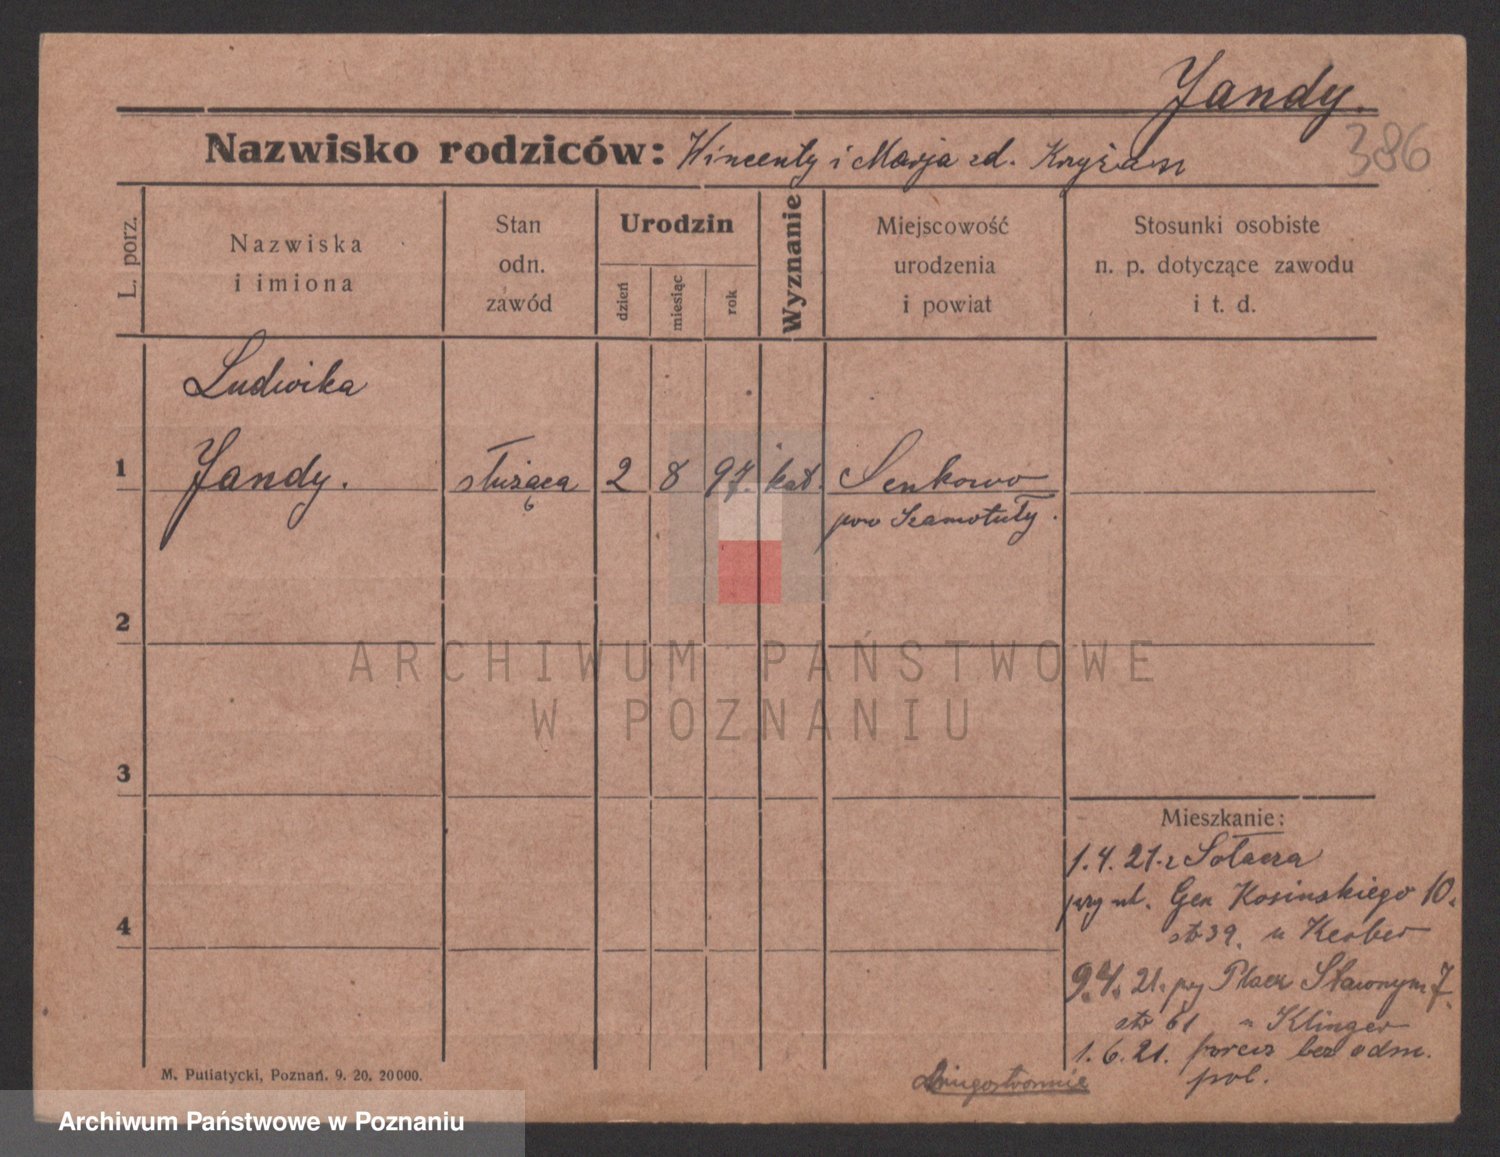 Jandy.
386
Nazwisko rodziców: Wincenty i Marja zd. Kryżan
L. porz.
Nazwiska
i imiona
Stan
odn.
zawód
Urodzin
dzień
miesiąc
rok
Wyznanie
Miejscowość
urodzenia
i powiat
Stosunki osobiste
n. p. dotyczące zawodu
i t. d.
Ludwika
1 Jandy. służąca 2 8 97. kat. Senkowo
pow Szamotuły.
2
ARCHIWUM PAŃSTWOWE
W POZNANIU
3
Mieszkanie:
1.4.21. z Sołacza
przy ul. Gen Kosinskiego 10.
str 39. u Kerber
4
9.4.21. przy Placu Sławnym 7.
str 61 " Klinger
1.6.21. bez odm.
pol.
M. Putiatycki, Poznań. 9. 20. 20000.
Archiwum Państwowe w Poznaniu